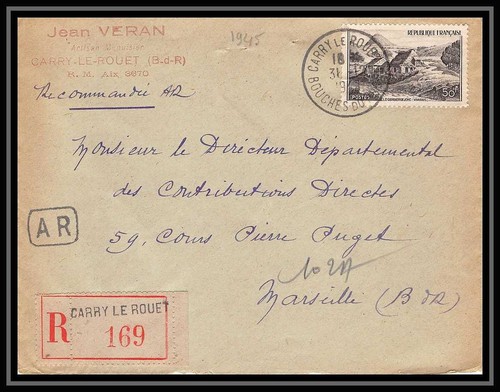 Jean VERAN
Artisan Menuisier
CARRY-LE-ROUET (B-d-R)
R. M. Aix 3670
Recommandée AR
1945
CARRY LE ROUET
18
31
19
BOUCHES DU
REPUBLIQUE FRANÇAISE
POSTES
50F
Monsieur le Directeur Départemental
des Contributions Directes
59, Cours Pierre Puget
Marseille (B d R)
AR
R
CARRY LE ROUET
169